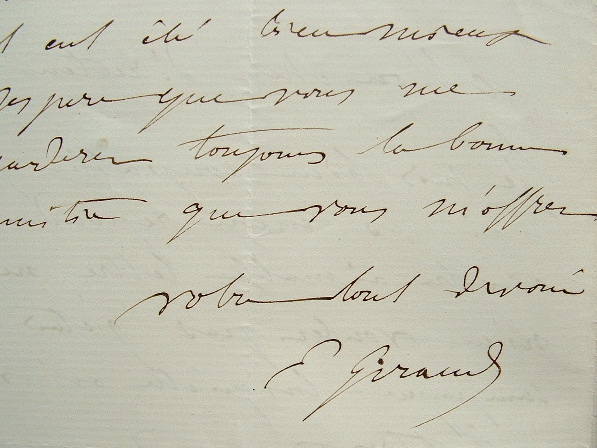 eut été bien mieux
espere que vous me
garderez toujours la bonne
amitié que vous m'offrez
votre tout dévoué
E Giraud